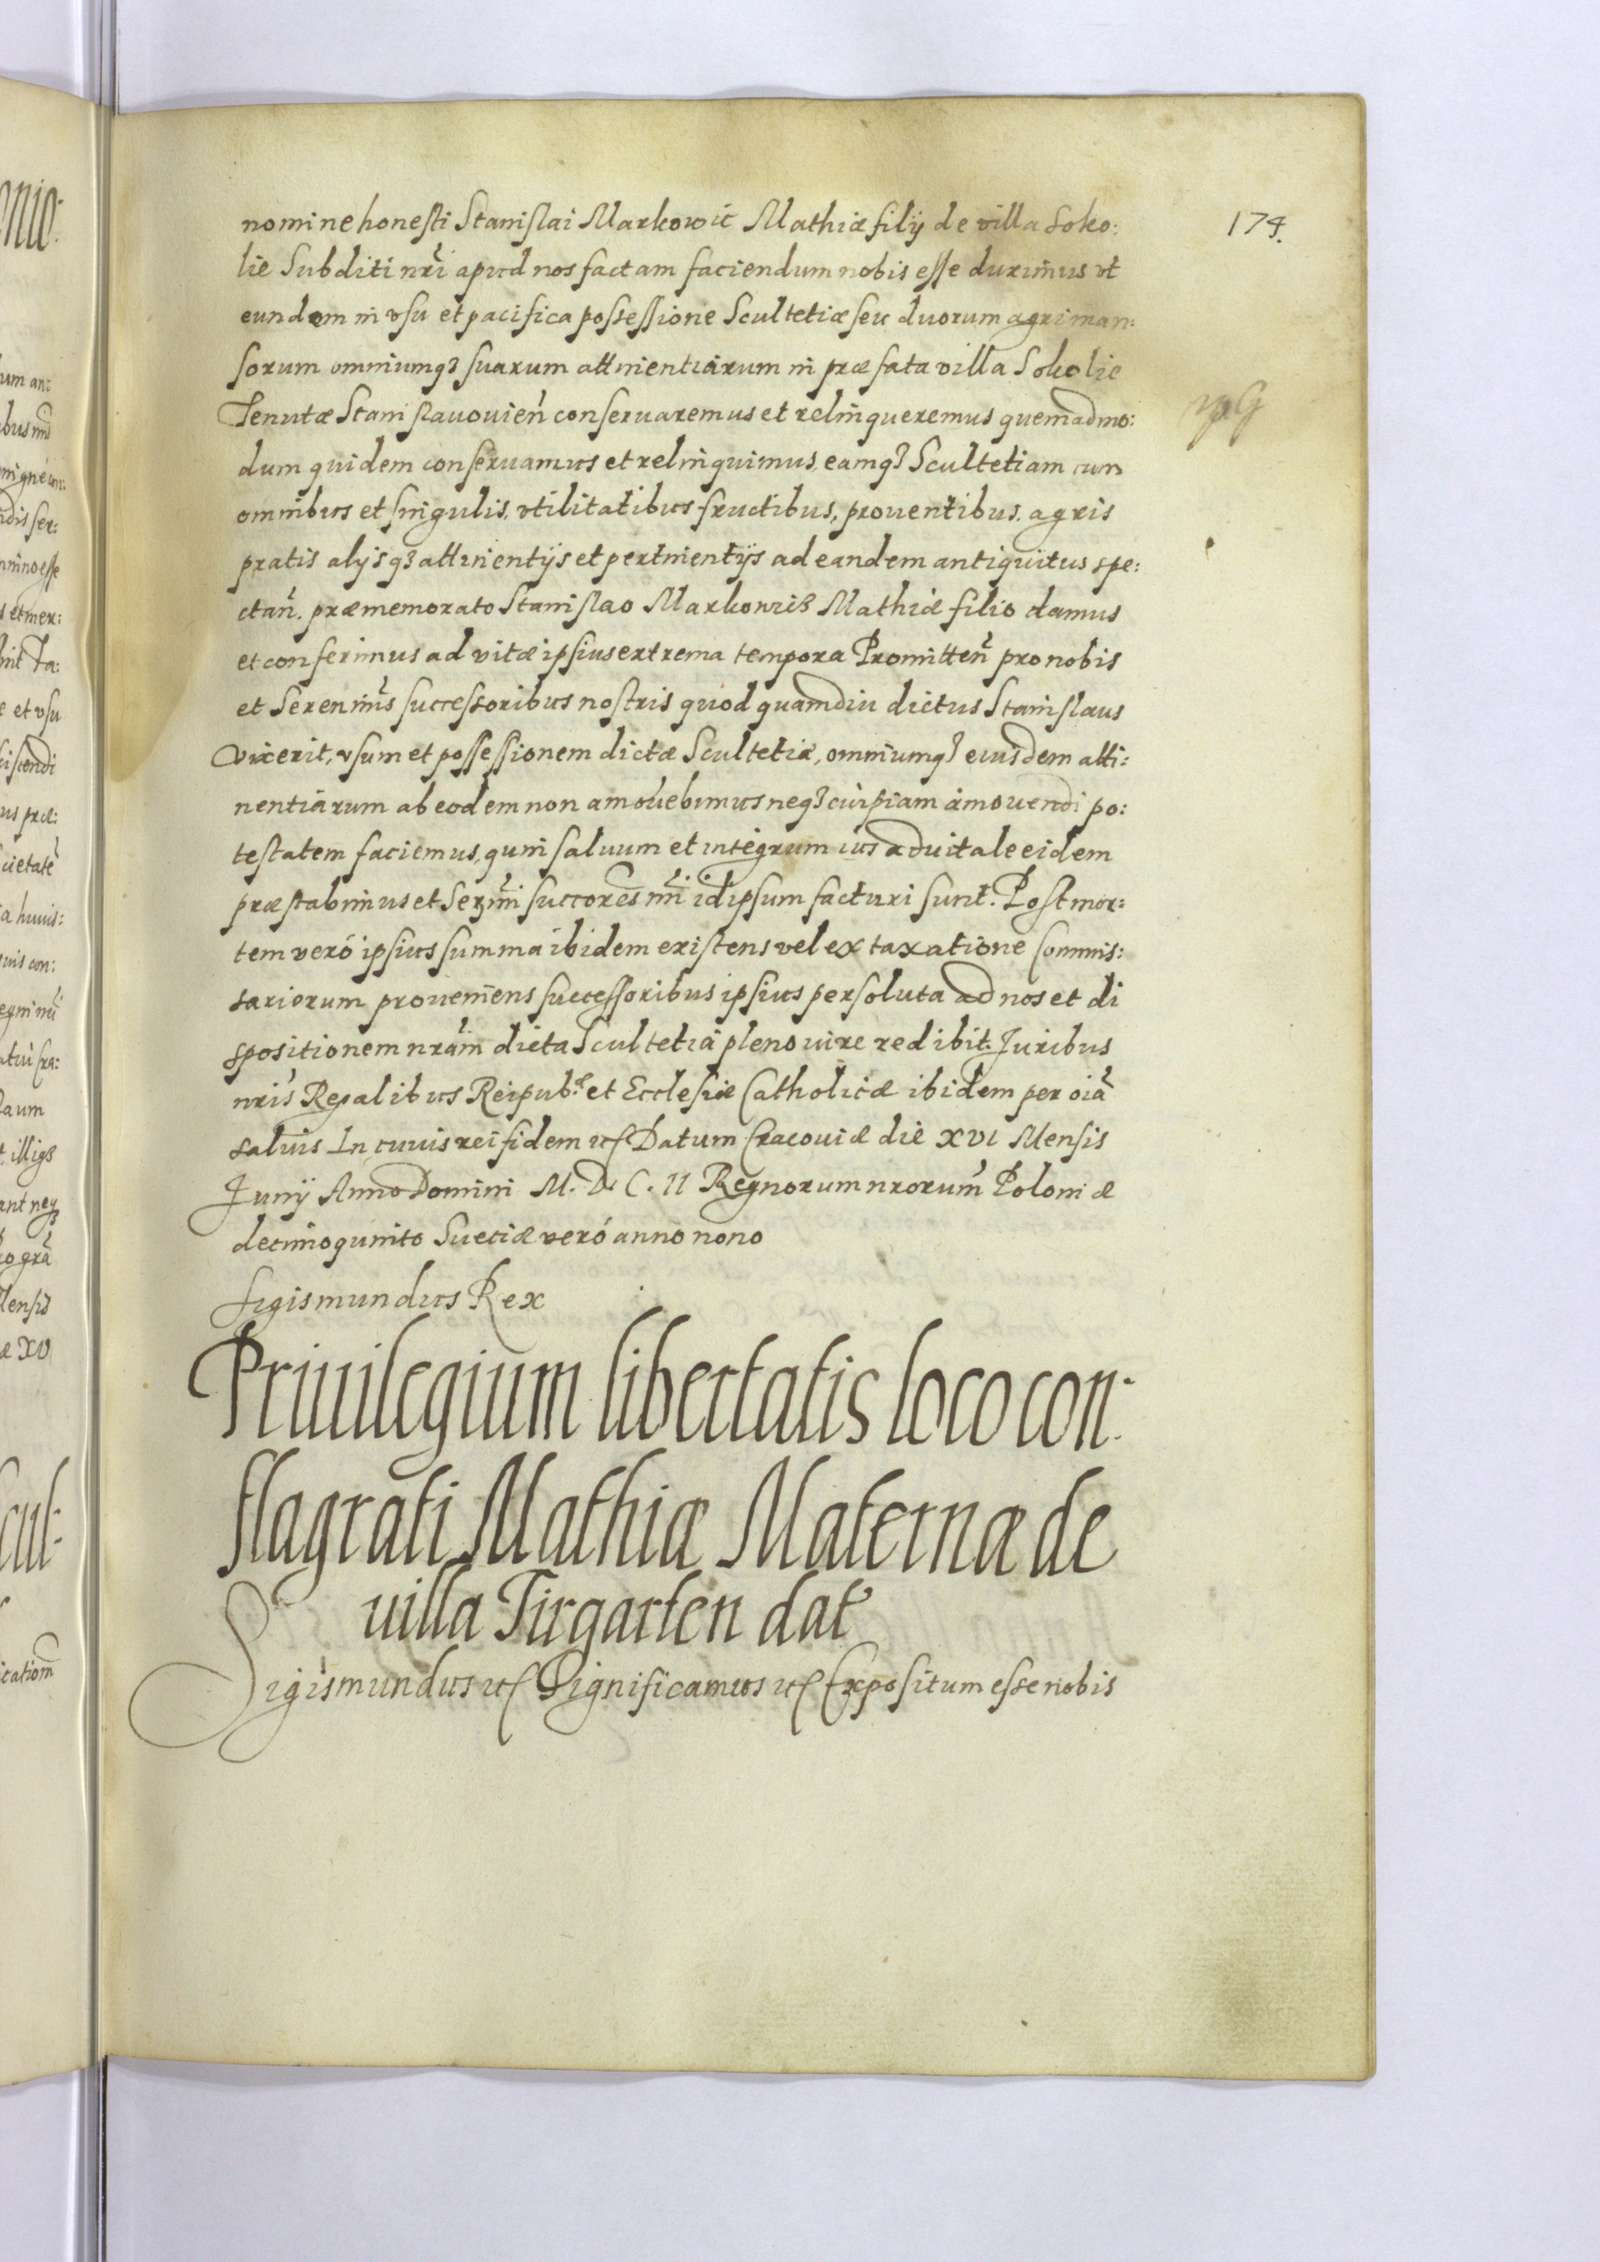 174.
nomine honesti Stanislai Markowic Mathiæ filij de villa Soko:
lie Subditi nr̃i apud nos factam faciendum nobis esse duximus vt
eundem in vsu et pacifica possessione Scultetiæ seu duorum agri man:
sorum omniumq3 suarum attinentiarum in præfata villa Sokolie
Tenutæ Stanislauouien̄ conseruaremus et relinqueremus quemadmo:
dum quidem conseruamus et relinquimus, eamq3 Scultetiam cum
omnibus et singulis, vtilitatibus fructibus, prouentibus, agris
pratis alijsq3 attinentijs et pertinentijs ad eandem antiquitus spe:
ctan̄. præmemorato Stanislao Markowic Mathiæ filio damus
et conferimus ad vitæ ipsius extrema tempora Promitten̄ pro nobis
et Serenimis̃ successoribus nostris quod quamdiu dictus Stanislaus
vixerit, vsum et possessionem dictæ Scultetiæ, omniumq3 eiusdem atti:
nentiarum ab eodem non amouebimus neq3 cuipiam amouendi po:
testatem faciemus, quin saluum et integrum ius aduitale eidem
præstabimus et Ser̃mi succores̃ nr̃i idipsum facturi sunt. Post mor:
tem veró ipsius summa ibidem existens vel ex taxatione Commis:
sariorum proueniens successoribus ipsius persoluta ad nos et di
spositionem nram̃ dicta Scultetia pleno iure redibit. Juribus
nris̃ Regalibus Reipub.æ et Ecclesiæ Catholicæ ibidem per oiã
saluis In cuius rei fidem etc Datum Cracouiæ die XVI Mensis
Junij Anno Domini M. D. C. II Regnorum nrorum̃ Poloniæ
decimoquinto Sueciæ veró anno nono
Sigismundus Rex
Priuilegium libertatis loco con:
flagrati Mathiæ Maternæ de
villa Tirgarten dat̃
Sigismundus etc Significamus etc Expositum esse nobis